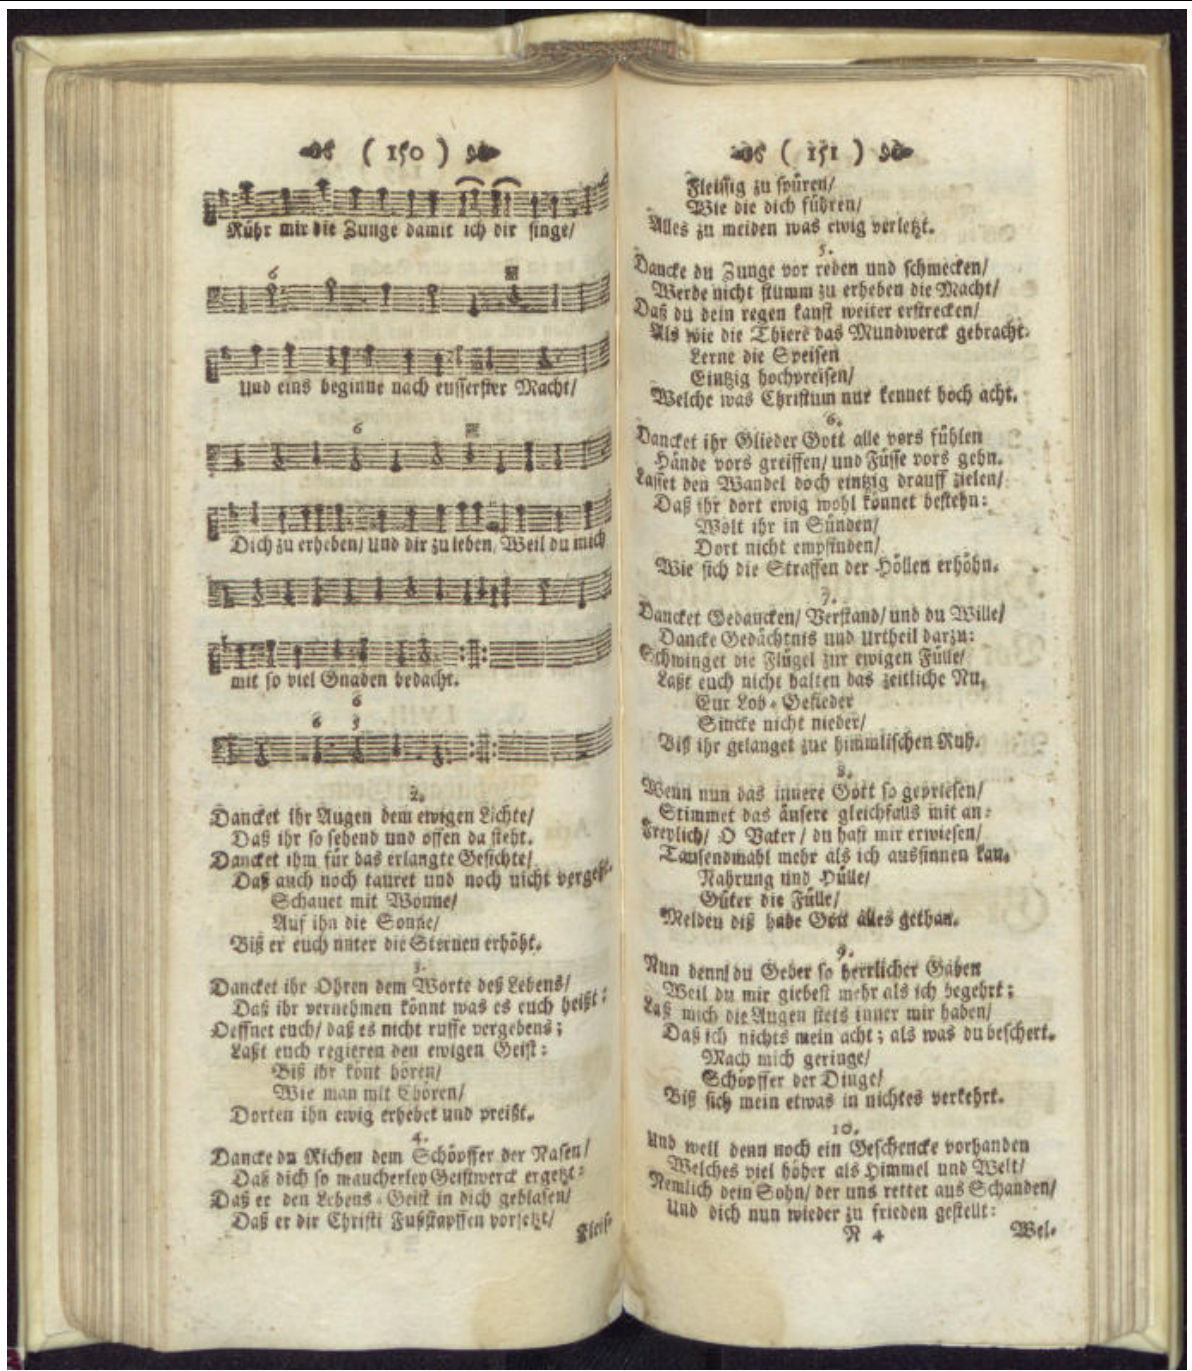 ( 150 )
Rühr mir die Zunge damit ich dir singe/
6
Und eins beginne nach eusserster Macht/
6
Dich zu erheben/ und dir zu leben/ Weil du mich
mit so viel Gnaden bedacht.
6
6 5
2.
Dancket ihr Augen dem ewigen Lichte/
Daß ihr so sehend und offen da steht.
Dancket ihm für das erlangte Gesichte/
Daß auch noch tauret und noch nicht vergeht.
Schauet mit Wonne/
Auf ihn die Sonne/
Biß er euch unter die Sternen erhöht.
3.
Dancket ihr Ohren dem Worte deß Lebens/
Daß ihr vernehmen könnt was es euch heißt:
Oeffnet euch/ daß es nicht ruffe vergebens;
Laßt euch regieren den ewigen Geist:
Biß ihr könt hören/
Wie man mit Chören/
Dorten ihn ewig erhebet und preißt.
4.
Dancke du Richen dem Schöpffer der Nasen/
Daß dich so mancherley Geistwerck ergetzt:
Daß er den Lebens-Geist in dich geblasen/
Daß er dir Christi Fußstapffen vorsetzt/
Fleis-
( 151 )
Fleissig zu spüren/
Wie die dich führen/
Alles zu meiden was ewig verletzt.
5.
Dancke du Zunge vor reden und schmecken/
Werde nicht stumm zu erheben die Macht/
Daß du dein regen kanst weiter erstrecken/
Als wie die Thiere das Mundwerck gebracht.
Lerne die Speisen
Eintzig hochpreisen/
Welche was Christum nur kennet hoch acht.
6.
Dancket ihr Glieder Gott alle vors fühlen
Hände vors greiffen/ und Füsse vors gehn.
Lasset den Wandel doch eintzig drauff zielen/
Daß ihr dort ewig wohl könnet bestehn:
Wolt ihr in Sünden/
Dort nicht empfinden/
Wie sich die Straffen der Höllen erhöhn.
7.
Dancket Gedancken/ Verstand/ und du Wille/
Dancke Gedächtnis und Urtheil darzu:
Schwinget die Flügel zur ewigen Fülle/
Laßt euch nicht halten das zeitliche Nu,
Eur Lob-Gefieder
Sincke nicht nieder/
Biß ihr gelanget zur himmlischen Ruh.
8.
Wenn nun das innere Gott so gepriesen/
Stimmet das äusere gleichfalls mit an:
Freylich/ O Vater/ du hast mir erwiesen/
Tausendmahl mehr als ich aussinnen kan.
Nahrung und Hülle/
Güter die Fülle/
Melden diß habe Gott alles gethan.
9.
Nun denn/ du Geber so herrlicher Gaben
Weil du mir giebest mehr als ich begehrt;
Laß mich die Augen stets inner mir haben/
Daß ich nichts mein acht; als was du beschert.
Mach mich geringe/
Schöpffer der Dinge/
Biß sich mein etwas in nichtes verkehrt.
10.
Und weil denn noch ein Geschencke vorhanden
Welches viel höher als Himmel und Welt/
Nemlich dein Sohn/ der uns rettet aus Schanden/
Und dich nun wieder zu frieden gestellt:
R 4 Wel-